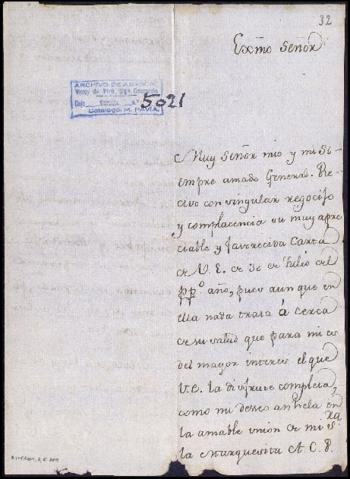 32
Exmo Señor
ARCHIVO DE
5021
Muy Señor mio y mi Si
empre amado General. Re
civo con singular regocijo
y complacencia su muy apre
ciable y favorecida Carta
de V. E. de 30 de Julio del
pp.º año, pues aunque en
ella nada trata á cerca
de su salud que para mi es
del mayor interes el que
V.E. la disfrute completa,
como mi deseo anhela en
la amable union de mi S.ra
la Marquesita A. C. P.